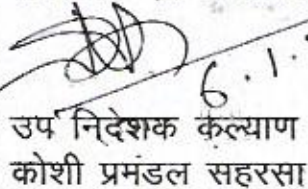 6.1.
उप निदेशक कल्याण
कोशी प्रमंडल सहरसा